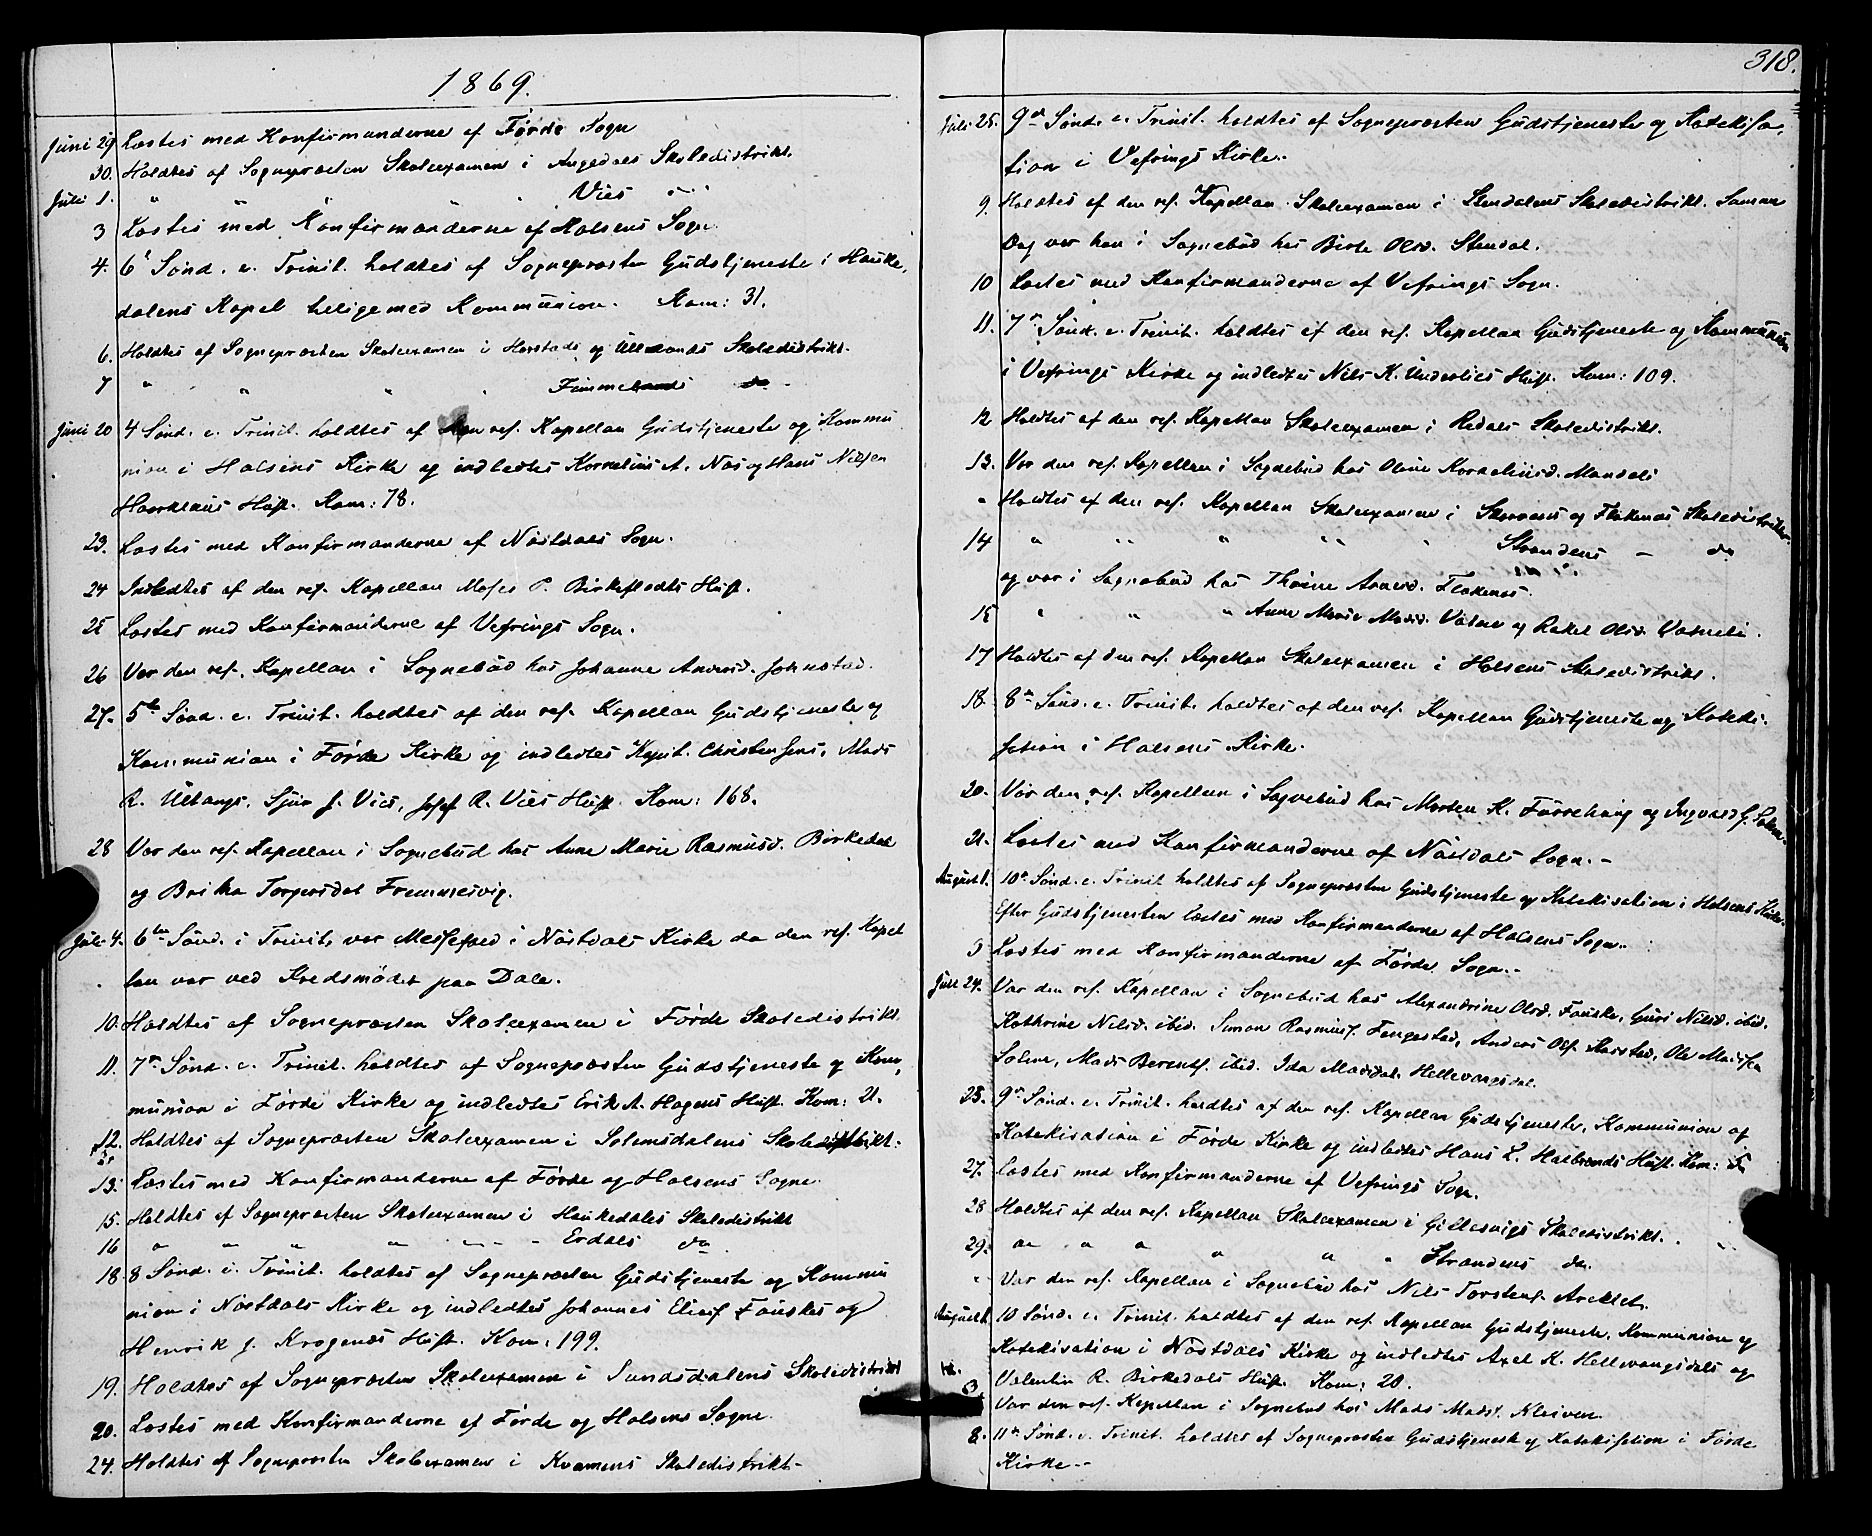 1869.
Juni 29 Læstes med Konfirmanderne af Førde Sogn
30. Holdtes af Sognepræsten Skoleexamen i Angedals Skoledistrikt.
Juli 1. " " " Vies "
3 Læstes med Konfirmanderne af Holsens Sogn
4. 6' Sønd. e. Trinit. holdtes af Sognepræsten Gudstjeneste i Hauke,
dalens Kapel tilligemed Kommunion. Kom: 31.
6. Holdtes af Sognepræsten Skoleexamen i Havstads og Ullelands Skoledistrikt.
7 " " " " Fimmelands do -
Juni 20 4 Sønd. e. Trinit. holdtes af den res. Kapellan Gudstjeneste og Kommu
nion i Holsens Kirke og indledtes Kornelius A. Næs og Hans Nilsen
Hust. Kom: 78.
23. Læstes med Konfirmanderne af Nøstdals Sogn.
24 Indledtes af den res. Kapellan Moses P. Birkeflodts Hust.
25 Læstes med Konfirmanderne af Vefrings Sogn.
26 Var den res. Kapellan i Sognebud hos Johanne Andersd. Johnstad.
27. 5te Sønd. e. Trinit. holdtes af den res. Kapellan Gudstjeneste og
Kommunion i Førde Kirke og indledtes Kapit. Christensens, Mads
R. Ullangs, Sjur J. Vies, Josef R. Vies Hust. Kom: 168.
28 Var den res. Kapellan i Sognebud hos Anne Marie Rasmusd. Birkedal
og Brita Torgersdat Fremmesvig.
Juli 4. 6te Sønd. i Trinit. var Messefald i Nøstdals Kirke da den res. Kapel
lan var ved Kredsmødet paa Dale.
10. Holdtes af Sognepræsten Skoleexamen i Førde Skoledistrikt
11. 7de Sønd. e. Trinit. holdtes af Sognepræsten Gudstjeneste og Kom,
munion i Førde Kirke og indledtes Erik A. Hagens Hust. Kom: 21.
12. Holdtes af Sognepræsten Skoleexamen i Solemsdalens Skoledistrikt.
13. Læstes med Konfirmanderne af Førde og Holsens Sogne.
15. Holdtes af Sognepræsten Skoleexamen i Haukedales Skoledistrikt
16 " " " " " Erdals do
18. 8 Sønd. e. Trinit. holdtes af Sognepræsten Gudstjeneste og Kommu
nion i Nøstdals Kirke og indledtes Johannes Elias Fauskes og
Henrik J. Krogenæs Hust. Kom: 199.
19. Holdtes af Sognepræsten Skoleexamen i Sundsdalens Skoledistrikt
20. Læstes med Konfirmanderne af Førde og Holsens Sogne.
24. Holdtes af Sognepræsten Skolexamen i Kvamens Skoledistrikt -
318.
Juli 25. 9de Sønd. e. Trinit. holdtes af Sognepræsten Gudstjeneste og Katekisa,
tion i Vefrings Kirke.
9. Holdtes af den res. Kapellan Skoleexamen i Stendalens Skoledistrikt. Samme
Dag var han i Sognebud hos Birte Olsd. Stendal.
10 Læstes med Konfirmanderne af Vefrings Sogn.
11. 7de Sønd. e. Trinit. holdtes af den res. Kapellan Gudstjeneste og Kommunion
i Vefrings Kirke og indledtes Nils K. Underlies Hust. Kom: 109.
12 Holdtes af den res. Kapellan Skoleexamen i Redals Skoledistrikt.
13. Var den res. Kapellan i Sognebud hos Oline Korneliusd. Mandeli
" Holdtes af den res. Kapellan Skoleexamen i Skorvens og Flokenes Skoledistrikter.
14 " " " " " Strandens - do
og var i Sognebud hos Thrine Flokenes.
15 " " " Anne Marie Madsd. og Rakel Olsd. Vasneli.
17 Holdtes af den res. Kapellan Skoleexamen i Holsens Skoledistrikt.
18. 8de Sønd. e. Trinit. holdtes af den res. Kapellan Gudstjeneste og Kateki-
sation i Holsens Kirke.
20. Var den res. Kapellan i Sognebud hos Morten K. Førrehaug og Ingvard G.
21. Læstes med Konfirmanderne af Nøstdals Sogn. -
August 1. 10de Sønd. e. Trinit holdtes af Sognepræsten Gudstjeneste og Katekisation i Holsens Kirke.
Efter Gudstjenesten læstes med Konfirmanderne af Holsens Sogn.
3 Læstes med Konfirmanderne af Førde Sogn. -
Juli 24. Var den res. Kapellan i Sognebud hos Alexandrine Olsd. Fauske, Guri Nilsd. ibid.
Kathrine Nilsd. ibid. Simon Rasmuss. Fengestad, Anders Ols. Ole
Solem, Mads Berents. ibid. Ida Madsdat. Hellevangsdal.
25. 9de Sønd. e. Trinit. holdtes af den res. Kapellan Gudstjeneste, Kommunion og
Katekisation i Førde Kirke og indledtes Hans L. Halbrends Hust. Kom:
27. Læstes med Konfirmanderne af Vefrings Sogn.
28 Holdtes af den res. Kapellan Skoleexamen i Gillesvigs Skoledistrikt.
29. " " " " " " Strandens do.
" Var den res. Kapellan i Sognebud hos Nils Torstens. Areklet.
August 1. 10 Sønd. e. Trinit. holdtes af den res. Kapellan Gudstjeneste, Kommunion og
Katekisation i Nøstdals Kirke og indledtes Axel K. Hellevangsdals og
Valentin R. Birkedals Hust. Kom: 20.
3 Var den res. Kapellan i Sognebud hos Mads Mads. Kleiven.
8. 11te Sønd. e. Trinit. holdtes af Sognepræsten Gudstjeneste og Katekisation i Førde
Kirke. -